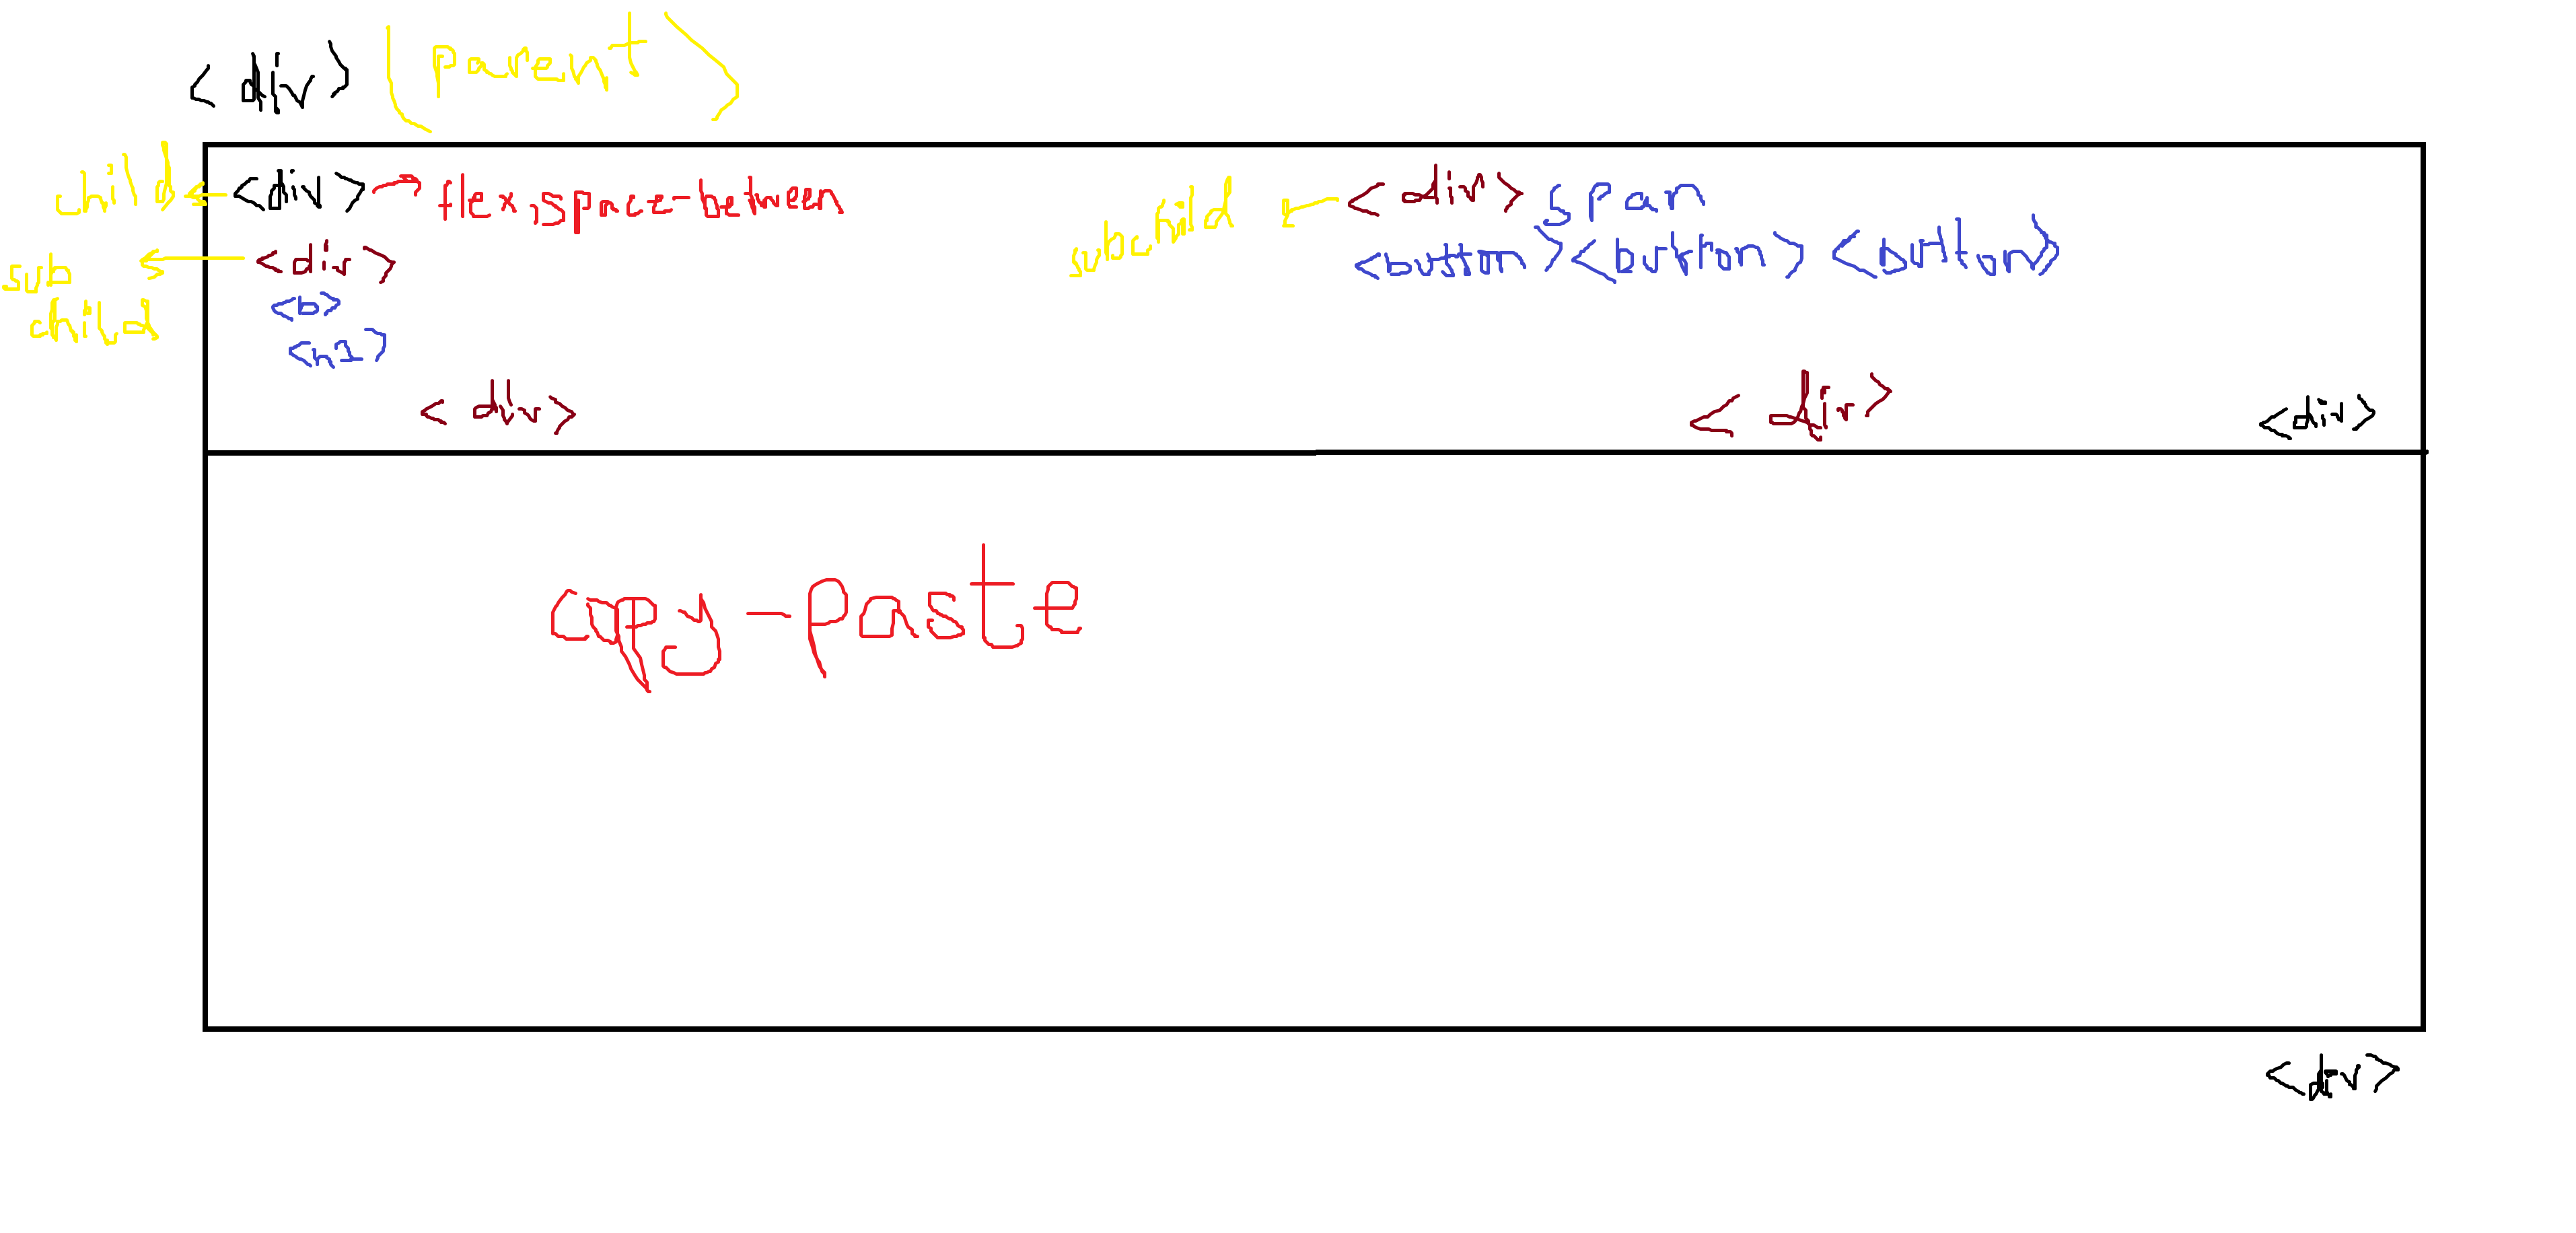 <div> (parent)
child <div> → flex, space-between
subchild <div> span
sub child <div>
<button> <button> <button>
<b>
<h1>
<div>
<div>
<div>
copy-paste
<div>